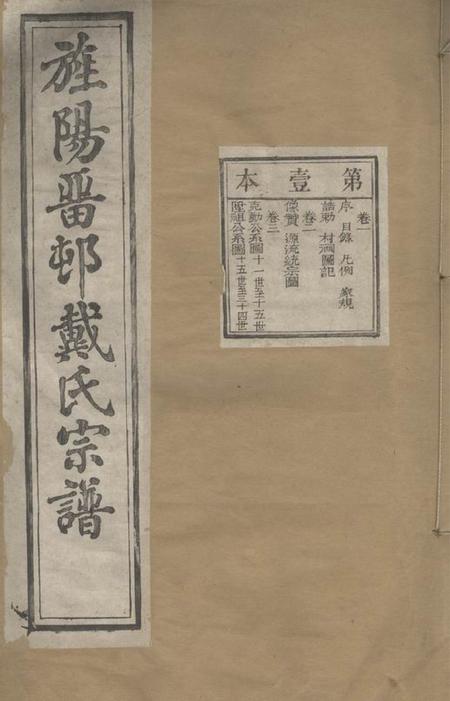 旌陽畱邨戴氏宗譜
第壹本
卷一
序 目錄 凡例 家規
誥勅 村祠圖記
卷二
像贊 源流統宗圖
卷三
克勤公系圖十一世至十五世
祖公系圖十五世至三十四世